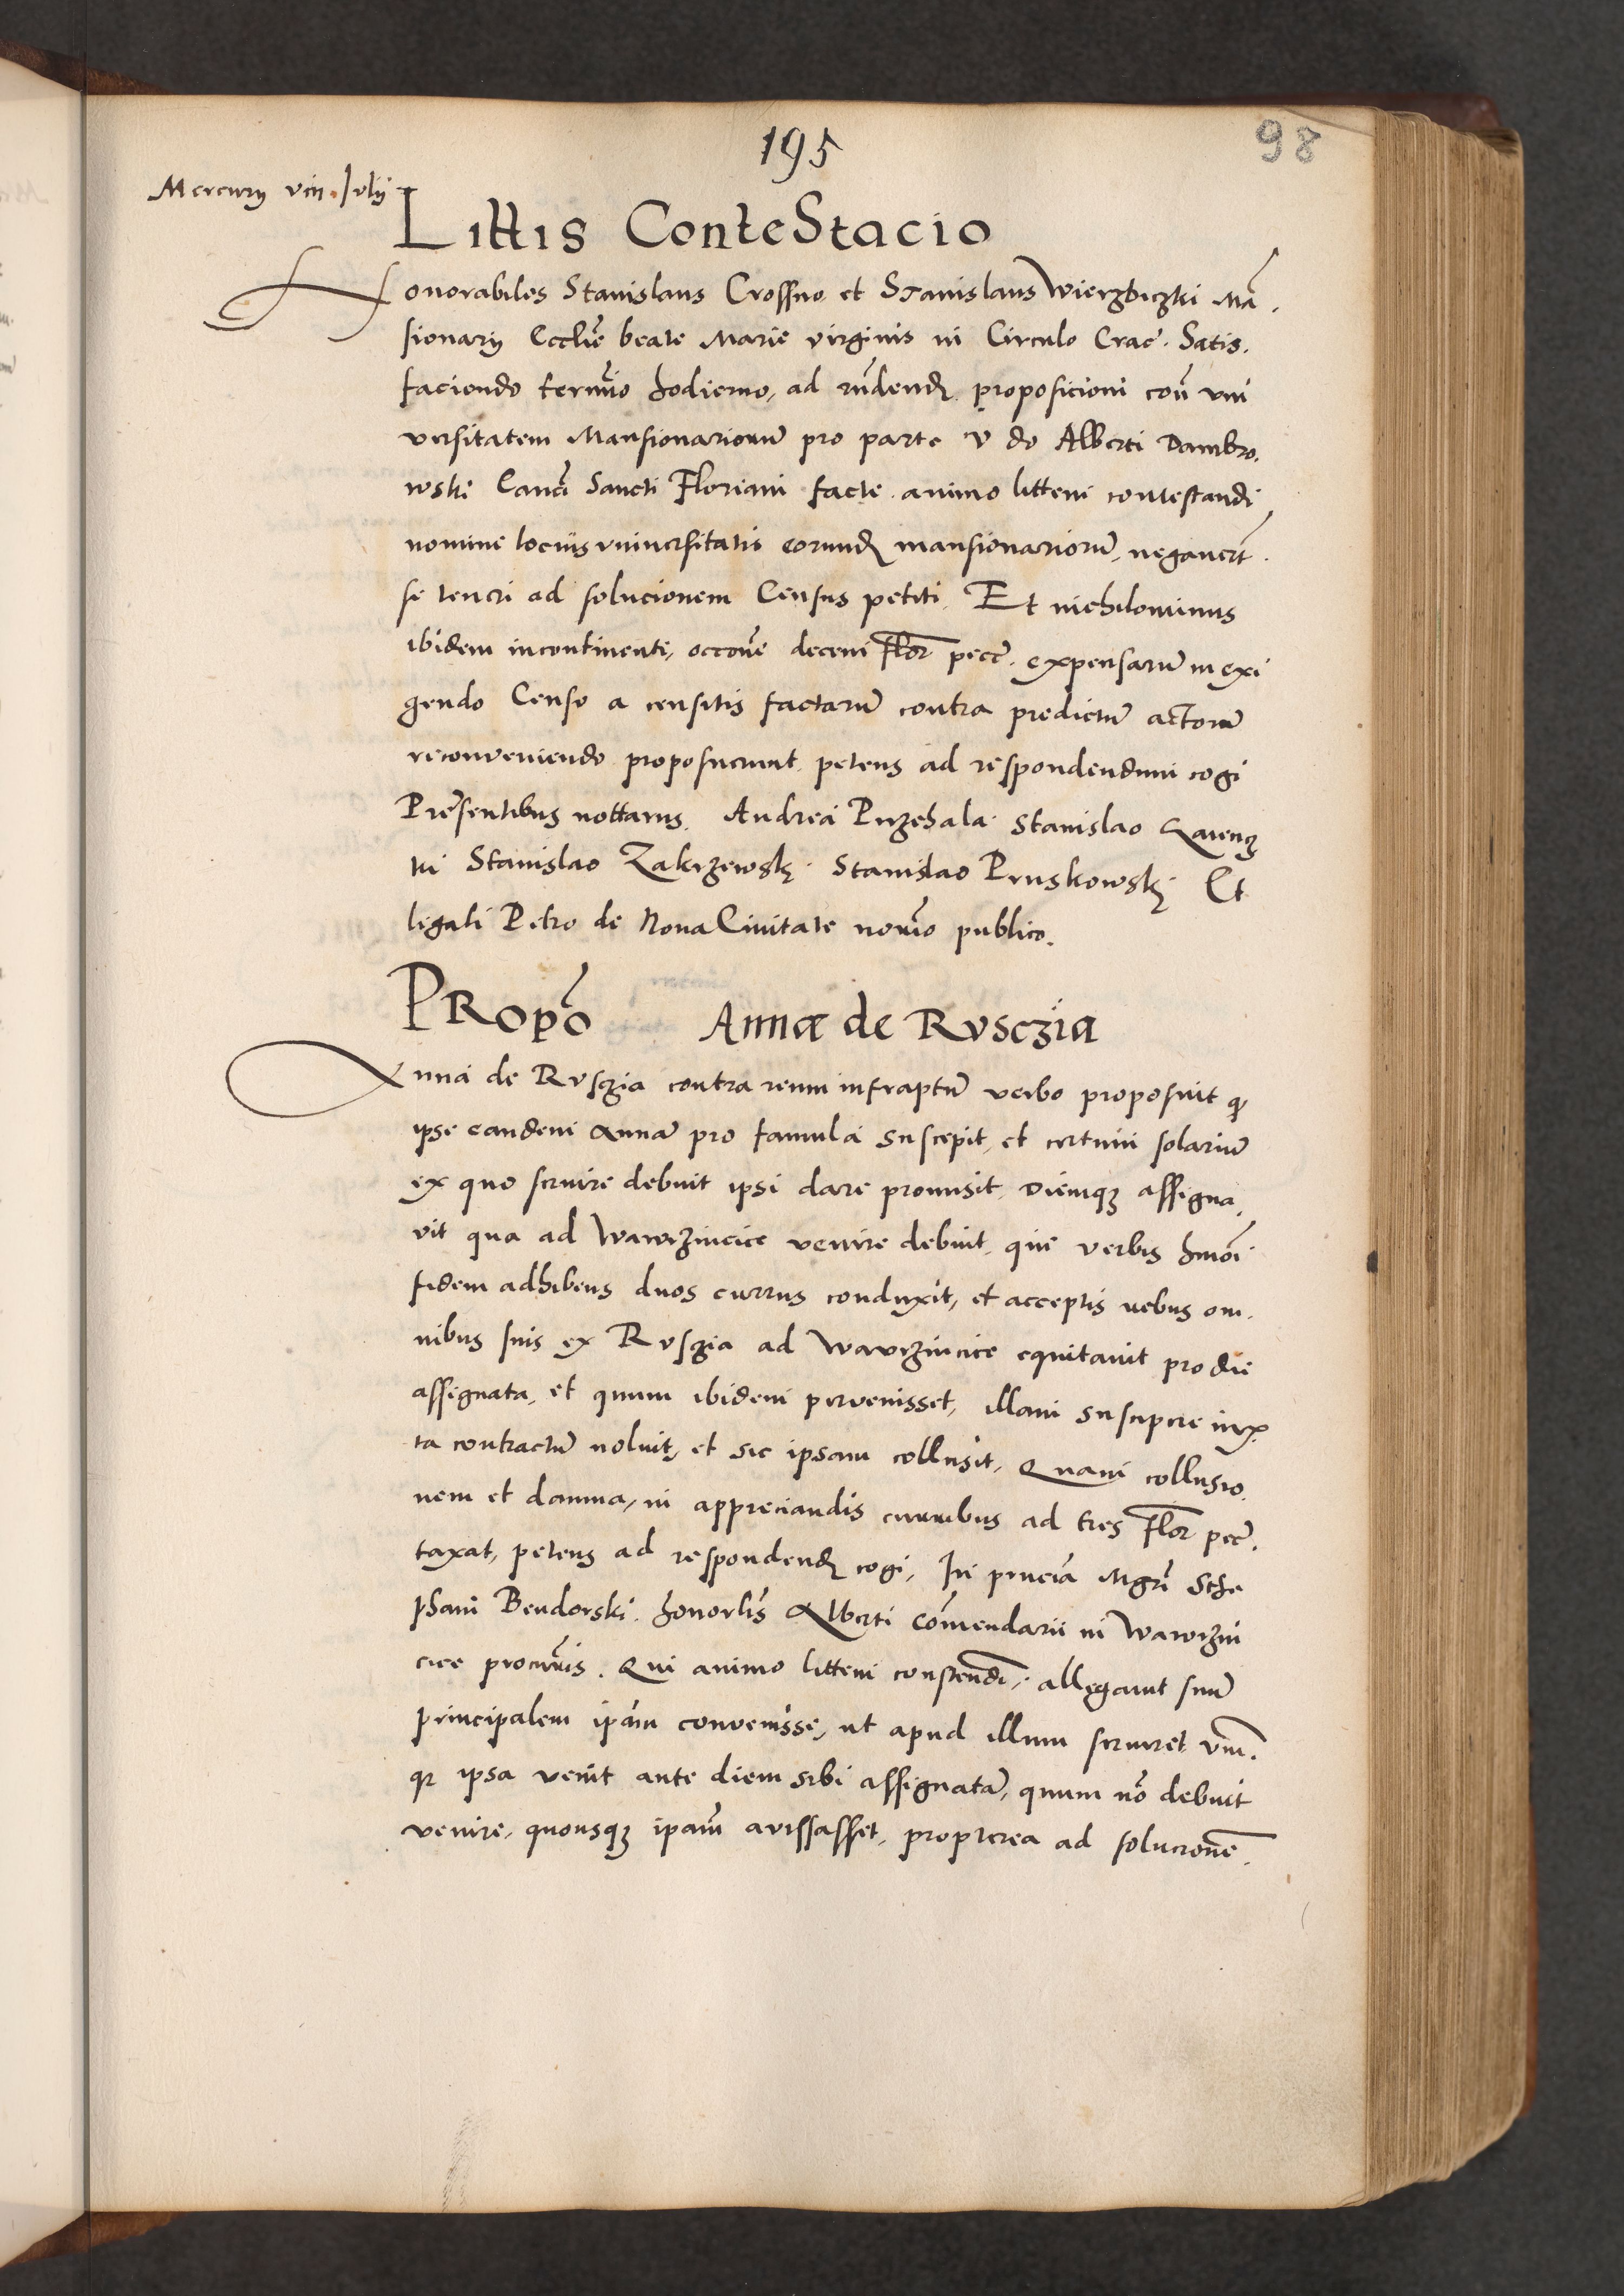 195
98
Mercurij viii Julij
Littis ConteStacio
Honorabiles Stanislaus Crossno et Stanislaus Wierzbiczki Mā
sionarij Ecclīe beate Marie virginis in Circulo Crac. Satis.
faciendo termīo hodierno, ad rn̄dend proposicioni con̄ vni
versitatem Mansionariorum̄ pro parte v do Alberti Dambro.
wski Canci Sancti Floriani facte animo littem contestandi
nomine tocius vniversitatis eorund mansionariorum̄, negauer̄t
se teneri ad solucionem Census petiti. Et nichilominus
ibidem incontinenti, occōne decem flor pecc̄. expensarum̄ in exi
gendo Censo a censitis factarum̄ contra predictum̄ actorem̄
reconveniendo proposuerunt petens ad respondendum cogi
Presentibus nottarijs. Andrea Przechala. Stanislao
ki Stanislao Zakrzewsk. Stanislao Pruskowsk. Et
legali Petro de Nova Civitate norīo publico.
PRopō Annæ de Rvsczia
Anna de Rvsczia contra reum infrapttum̄ verbo proposuit q
ipse eandem Annam̄ pro famula suscepit, et certum solarium̄
ex quo servire debuit ipsi dare promisit, Diemq3 assigna.
vit qua ad Wawrzincice venire debuit, que verbis hmōi
fidem adhibens duos currus conduxit, et acceptis rebus om.
nibus suis ex Rvszia ad Wawrzincice equitavit pro die
assignata, et quum ibidem pervenisset, illam suscipere iux
ta contractum̄ noluit, et sic ipsam collusit, Quam collusio.
nem et damna, in appreciandis curribus ad tres flor pecc̄.
taxat, petens ad respondend cogi, In pnciā Mgrī Ste
phani Bendorski. honorlīs Alberti Cōmendarii in Wawrzin
cice procrīs. Qui animo littem constendī, allegarunt suum̄
principalem ipām convenisse, ut apud illum serviret vm̄.
q ipsa venit ante diem sibi assignatam̄, quum nō debuit
venire, quousq3 ipām avissasset, propterea ad solucionē.